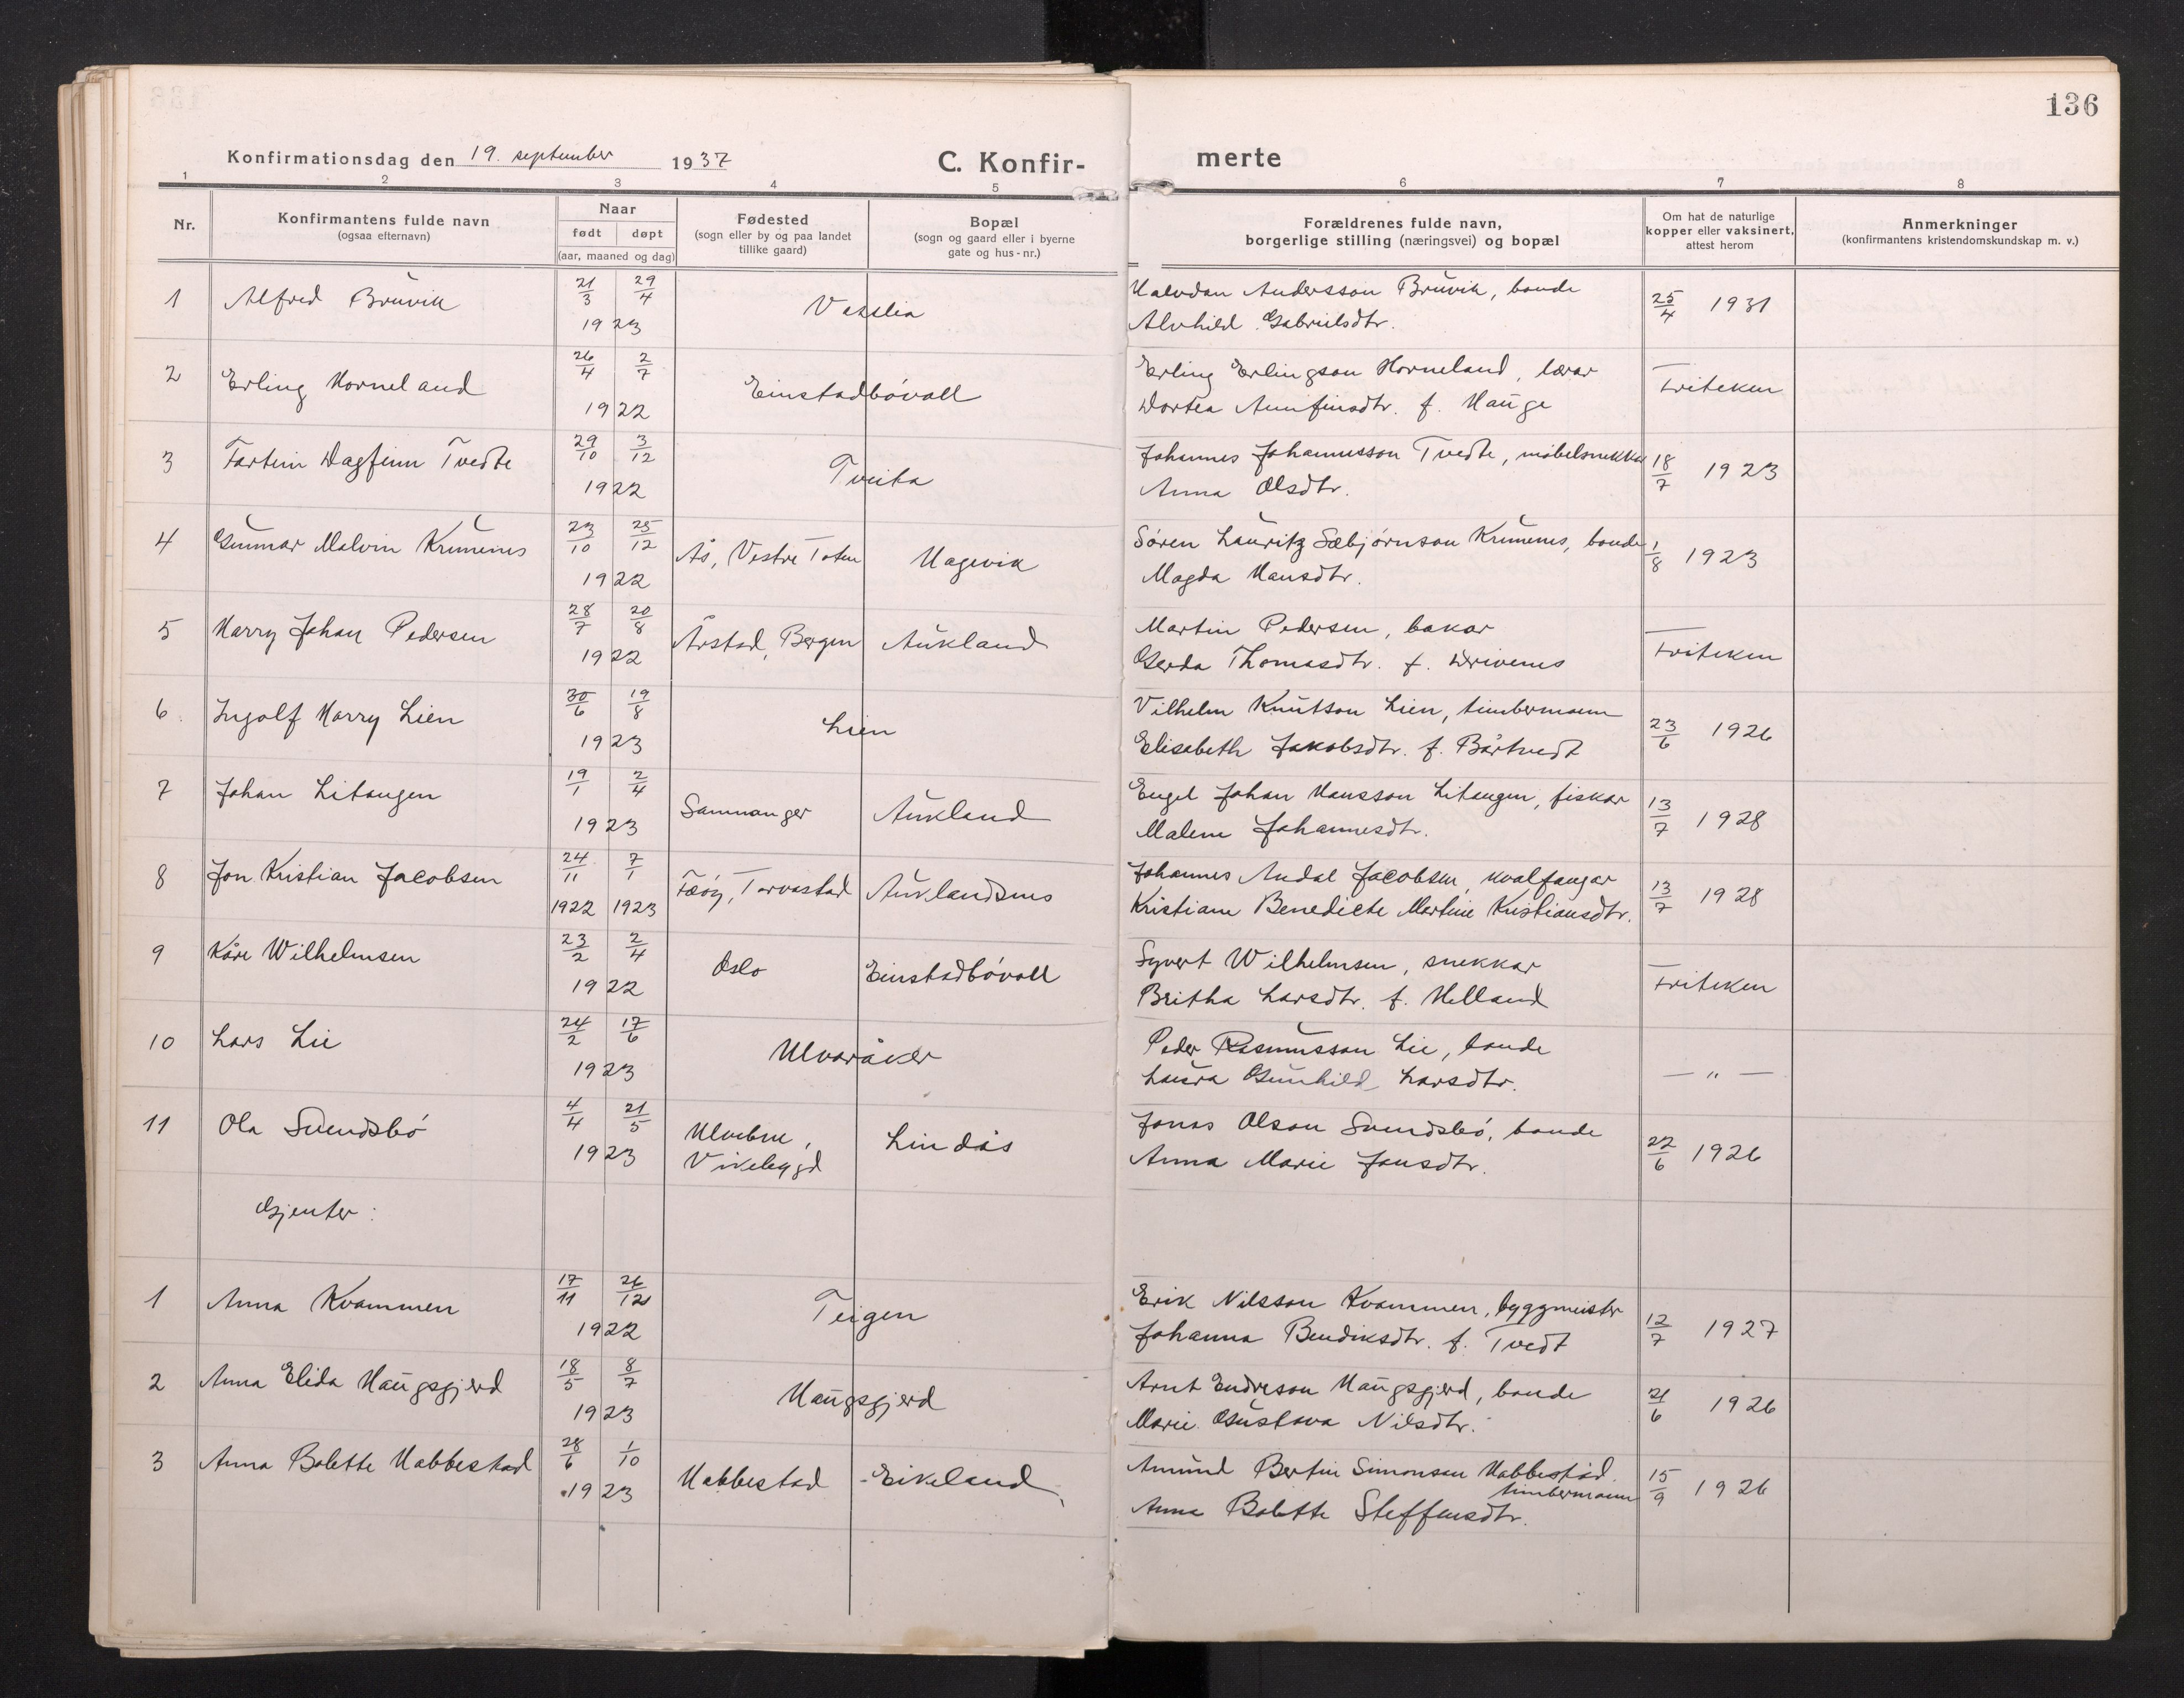 136
Konfirmationsdag den 19. september 1937
C. Konfir-
merte
1 2 3 4 5 6 7 8
Nr.
Konfirmantens fulde navn
(ogsaa efternavn)
Naar
født døpt
(aar, maaned og dag)
Fødested
(sogn eller by og paa landet
tillike gaard)
Bopæl
(sogn og gaard eller i byerne
gate og hus-nr.)
Forældrenes fulde navn,
borgerlige stilling (næringsvei) og bopæl
Om hat de naturlige
kopper eller vaksinert,
attest herom
Anmerkninger
(konfirmantens kristendomskundskap m. v.)
1 Alfred Bruvik 21/3 29/4 1923 Vesslia Halvdan Andersson Bruvik, bonde 25/4 1931
Alvhild Gabrielsdtr.
2 Erling Horneland 26/4 2/7 1922 Einstadbövoll Erling Erlingson Horneland, lærar Friteken
Dortea Arnfinsdtr. f. Hauge
3 Dagfinn Tvedte 29/10 3/12 1922 Tveita Johannes Johannesson Tvedte, møbelsnekkar 18/7 1923
Anna Olsdtr.
4 Gunnar Malvin Krumenes 23/10 25/12 1922 Ås, Vestre Toten Hagevik Søren Lauritz Sæbjørnson Krumenes, bonde 1/8 1923
Magda Hansdtr.
5 Harry Johan Pedersen 28/7 20/8 1922 Årstad, Bergen Aukland Martin Pedersen, bakar Friteken
Gerda Thomasdtr. f. Drivenes
6. Ingolf Harry Lien 30/6 19/8 1923 Lien Vilhelm Knutson Lien, timbermann 23/6 1926
Elisabeth Jakobsdtr. f. Bårtvedt
7 Johan Litangen 19/1 2/4 1923 Samnanger Aukland Engel Johan Hansson Litangen, fiskar 13/7 1928
Malene Johannesdtr.
8 Jon Kristian Jacobsen 24/11 7/1 1922 1923 Fæøy, Torvastad Auklandsnes Johannes Andal Jacobsen, kvalfangar 13/7 1928
Kristiane Benedicte Martine Kristiansdtr.
9 Kåre Wilhelmsen 23/2 2/4 1922 Oslo Einstadbövoll Syvert Wilhelmsen, snekkar Friteken
Britha Larsdtr. f. Helland
10 Lars Lie 24/2 17/6 1923 Ulvaråker Peder Rasmusson Lie, bonde — " —
Laura Gunhild Larsdtr.
11 Ola Svendsbö 4/4 21/5 1923 Ulvebne, Lindås Jonas Olson Svendsbö, bonde 22/6 1926
Vikebygd Anna Marie Jonsdtr.
Gjenter:
1 Anna Kvammen 17/11 26/12 1922 Teigen Erik Nilsson Kvammen, byggmeister 12/7 1927
Johanna Bendiksdtr. f. Tvedt
2 Anna Elida Haugsgjerd 18/5 8/7 1923 Haugsgjerd Arnt Endreson Haugsgjerd, bonde 21/6 1926
Marie Gustava Nilsdtr.
3 Anna Bolette Habbestad 28/6 1/10 1923 Habbestad Eikeland Amund Bertin Simonson Habbestad. 15/9 1926
timbermann
Anna Bolette Steffensdtr.